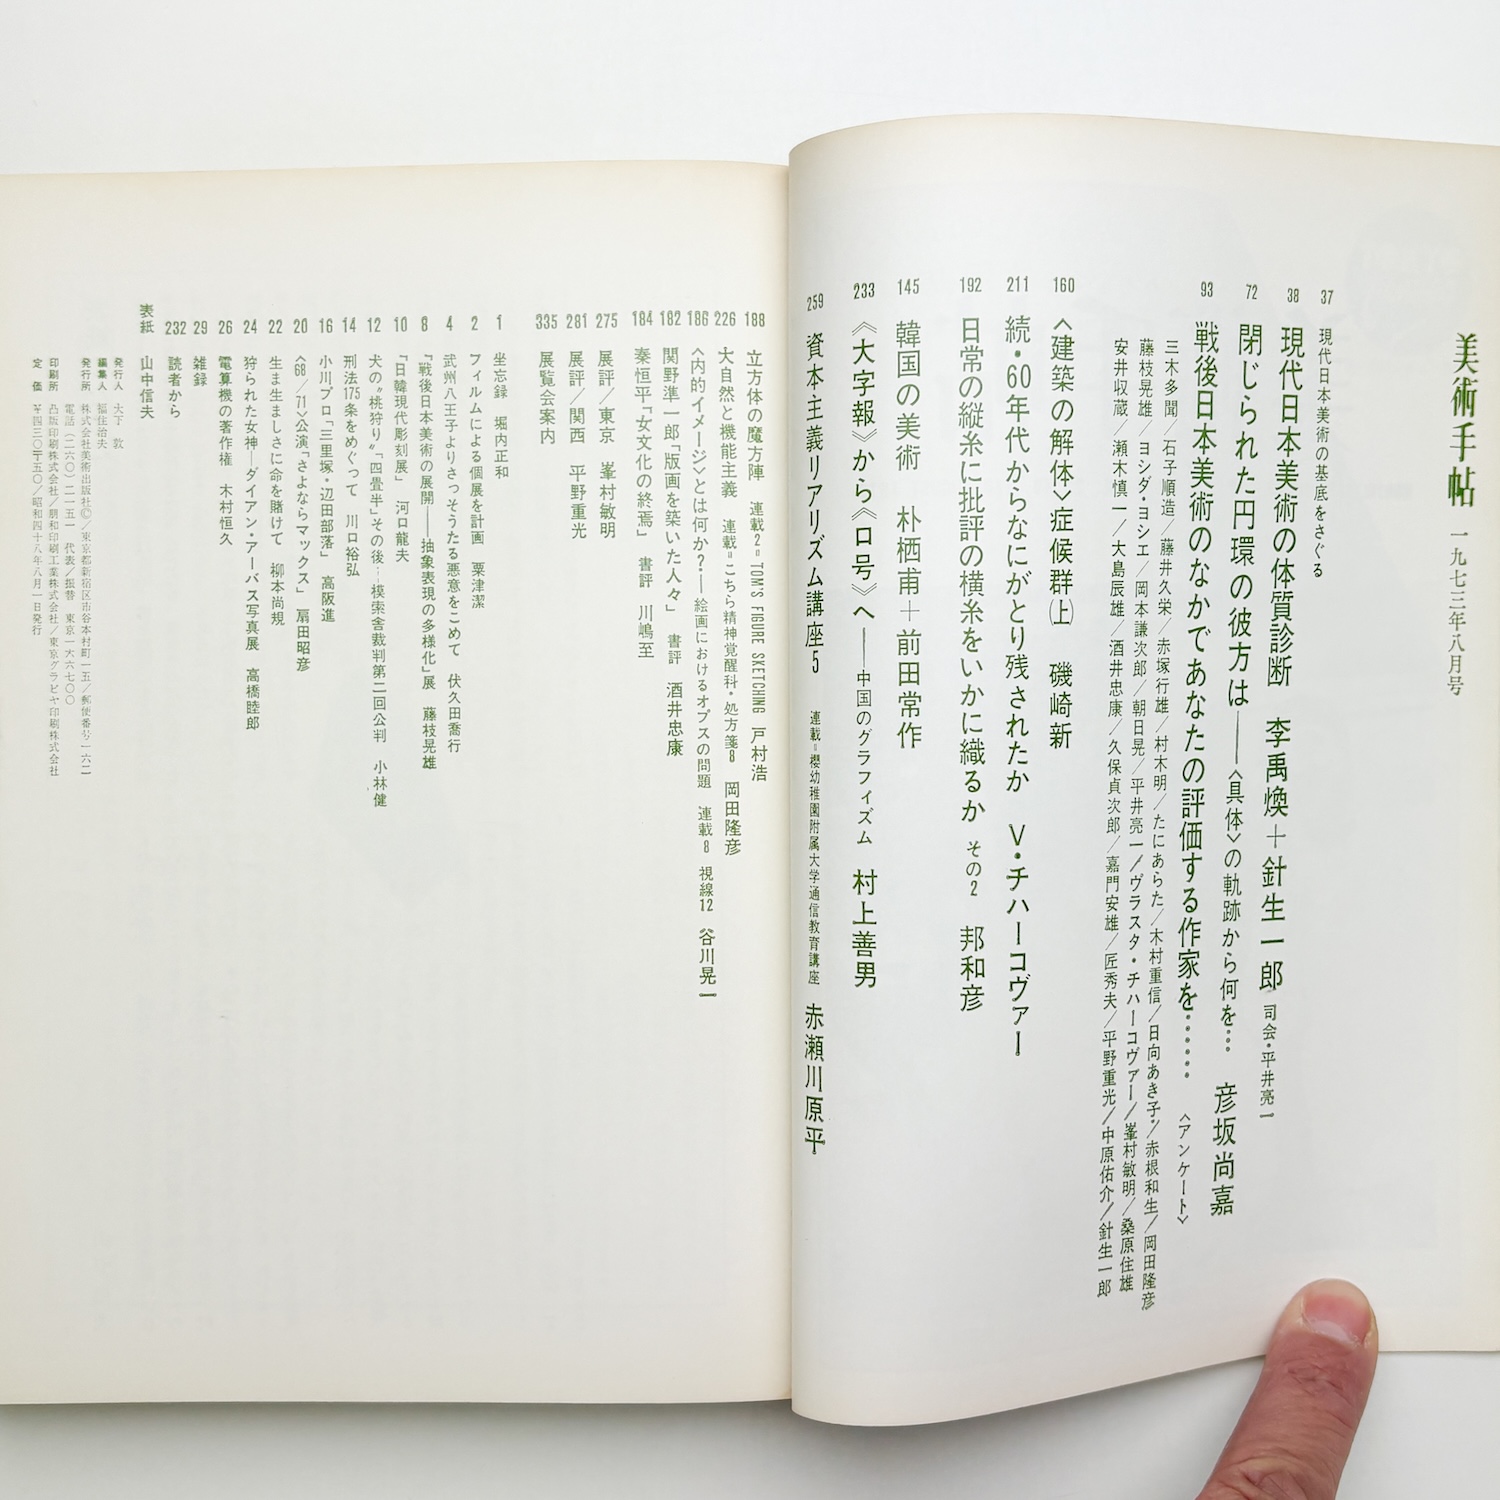 美術手帖 一九七三年八月号
37 現代日本美術の基底をさぐる
38 現代日本美術の体質診断 李禹煥＋針生一郎 司会・平井亮一
72 閉じられた円環の彼方は――〈具体〉の軌跡から何を… 彦坂尚嘉
93 戦後日本美術のなかであなたの評価する作家を…… 〈アンケート〉
三木多聞／石子順造／藤井久栄／赤塚行雄／村木明／たにあらた／木村重信／日向あき子／赤根和生／岡田隆彦
藤枝晃雄／ヨシダ・ヨシエ／岡本謙次郎／朝日晃／平井亮一／ヴラスタ・チハーコヴァー／峯村敏明／桑原住雄
安井収蔵／瀬木慎一／大島辰雄／酒井忠康／久保貞次郎／嘉門安雄／匠秀夫／平野重光／中原佑介／針生一郎
160 〈建築の解体〉症候群(上) 磯崎新
211 続・60年代からなにがとり残されたか V・チハーコヴァー
192 日常の縦糸に批評の横糸をいかに織るか その2 邦和彦
145 韓国の美術 朴栖甫＋前田常作
233 《大字報》から《口号》へ――中国のグラフィズム 村上善男
259 資本主義リアリズム講座5 連載＝櫻幼稚園附属大学通信教育講座 赤瀬川原平
188 立方体の魔方陣 連載2＝TOM'S FIGURE SKETCHING 戸村浩
226 大自然と機能主義 連載＝こちら精神覚醒科・処方箋8 岡田隆彦
186 〈内的イメージ〉とは何か?―絵画におけるオプスの問題 連載8 視線12 谷川晃一
182 関野準一郎「版画を築いた人々」 書評 酒井忠康
184 秦恒平「女文化の終焉」 書評 川嶋至
275 展評／東京 峯村敏明
281 展評／関西 平野重光
335 展覧会案内
1 坐忘録 堀内正和
2 フィルムによる個展を計画 粟津潔
4 武州八王子よりさっそうたる悪意をこめて 伏久田喬行
8 『戦後日本美術の展開――抽象表現の多様化』展 藤枝晃雄
10 「日韓現代彫刻展」 河口龍夫
12 犬の〝桃狩り〟「四畳半」その後…模索舎裁判第二回公判 小林健
14 刑法175条をめぐって 川口裕弘
16 小川プロ「三里塚・辺田部落」 高阪進
20 〈68／71〉公演「さよならマックス」 扇田昭彦
22 生ま生ましさに命を賭けて 柳本尚規
24 狩られた女神―ダイアン・アーバス写真展 高橋睦郎
26 電算機の著作権 木村恒久
29 雑録
232 読者から
表紙 山中信夫
発行人 大下 敦
編集人 福住治夫
発行所 株式会社美術出版社©／東京都新宿区市谷本村町一五／郵便番号一六二
電話(二六〇)二一五一 代表／振替 東京一六六七〇〇
印刷所 凸版印刷株式会社／朋和印刷工業株式会社／東京グラビヤ印刷株式会社
定 価 ¥四三〇〒五〇／昭和四十八年八月一日発行